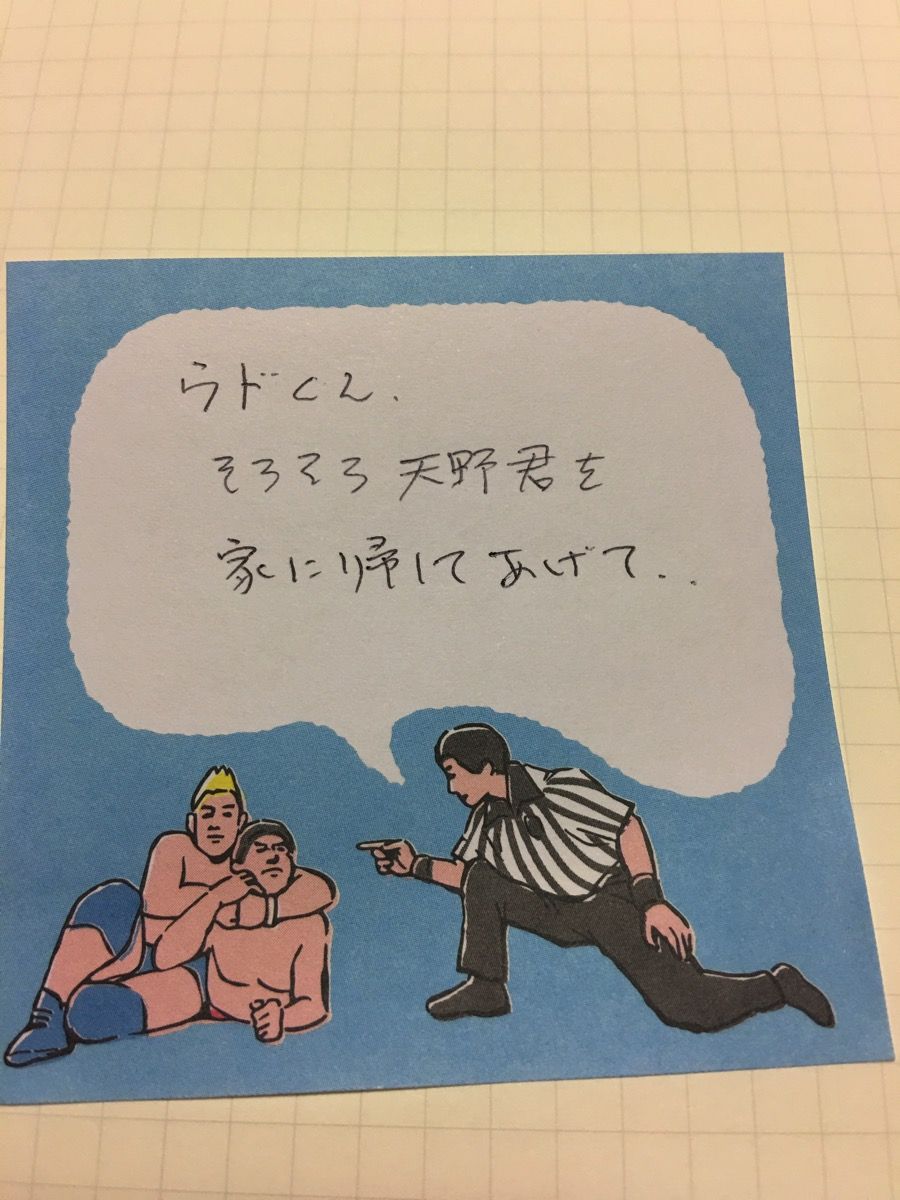 ウドくん、
そろそろ天野君を
家に帰してあげて..